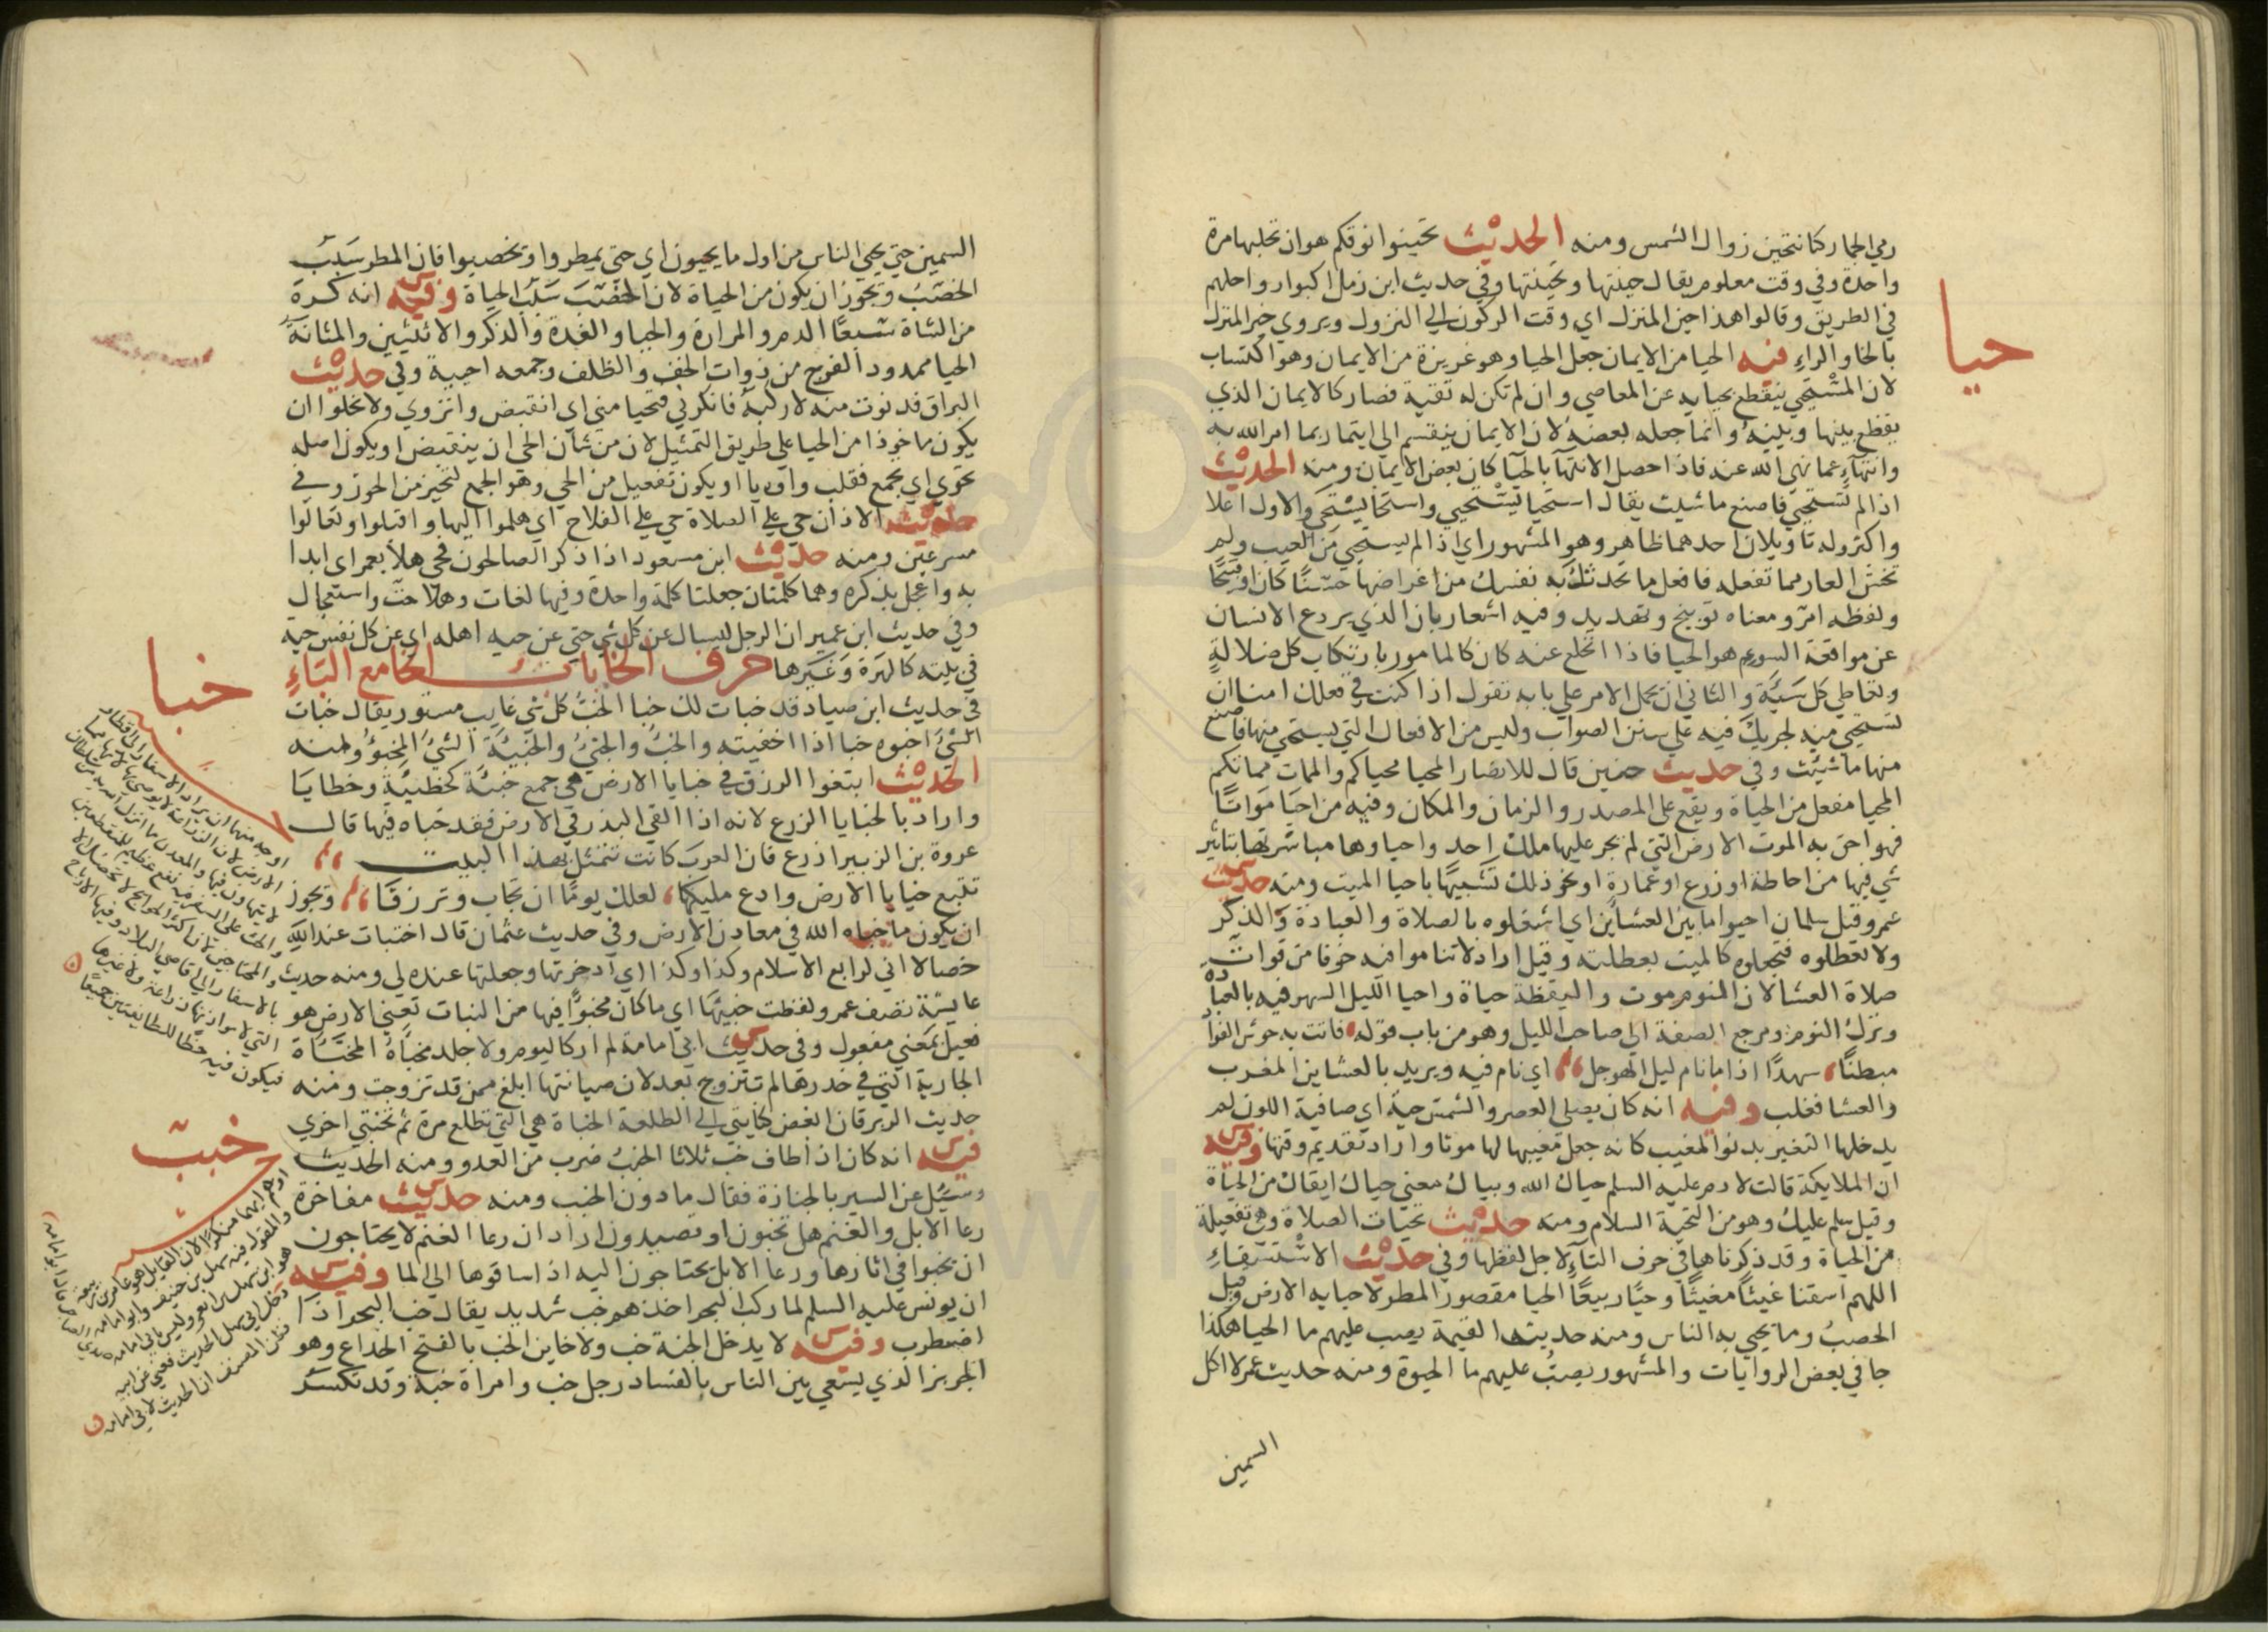 رمي الجمار كنا نتحين زوال الشمس ومنه الحديث تحينوا نوقكم هو ان تحلبها مرة
واحدة وفي وقت معلوم يقال حينتها وتحينتها وفي حديث ابن زمل اكبوا رواحلهم
في الطريق وقالوا هذا حين المنزل اي وقت الركون الي النزول ويروي خير المنزل
بالخا والراء فيه الحيا من الايمان جعل الحيا وهو غريزة من الايمان وهو اكتساب
حيا
لان المستحي ينقطع بحيايه عن المعاصي وان لم تكن له تقية فصار كالايمان الذي
يقطع بينها وبينه وانما جعله بعضه لان الايمان ينقسم الي ايتمار بما امر الله به
وانتهاء عما نهي الله عنه فاذا احصل الانتهآ بالحيآ كان بعض الايمان ومنه الحديث
اذا لم تستحي فاصنع ما شيت يقال استحيا يستحيي واستحا يستحي والاول اعلا
واكثر وله تاويلان احدهما ظاهر وهو المشهور اي اذا لم يستحي من العيب ولم
تخش العار مما تفعله فافعل ما تحدثك به نفسك من اغراضها حسنًا كان او قبيحًا
ولفظه امر ومعناه توبيخ وتهديد وفيه اشعار بان الذي يردع الانسان
عن مواقعة السوء هو الحيا فاذا انخلع عنه كان كالمامور بارتكاب كل ضلالة
وتعاطي كل سيئة والثاني ان يحمل الامر علي بابه تقول اذا كنت في فعلك امنا ان
تستحيي منه لجريك فيه علي سنن الصواب وليس من الافعال التي يستحي منها فاصنع
منها ما شيت وفي حديث حنين قال للانصار المحيا محياكم والممات مماتكم
المحيا مفعل من الحياة ويقع علي المصدر والزمان والمكان وفيه من احيا مواتًا
فهو احق به الموت الارض التي لم يجر عليها ملك احد واحياوها مباشرتها بتاثير
شي فيها من احاطة او زرع او عمارة او نحو ذلك تشبيهًا باحيا الميت ومنه حديث
عمر وقيل سلمان احيوا ما بين العشاين اي اشغلوه بالصلاة والعبادة والذكر
ولا تعطلوه فتجعلوه كالميت بعطلته وقيل اراد لا تناموا فيه خوفا من فوات
صلاة العشا لان النوم موت واليقظة حياة واحيا الليل السهر فيه بالعبادة
وترك النوم ومرجع الصفة الي صاحب الليل وهو من باب قوله فاتت به حوش الفوآد
مبطنًا سهدًا اذا ما نام ليل الهوجل اي نام فيه ويريد بالعشاين المغرب
والعشا فغلب وفيه انه كان يصلي العصر والشمس حية اي صافية اللون لم
يدخلها التغير بدنو المغيب كانه جعل مغيبها لها موتا واراد تقديم وقتها وفيه
ان الملايكة قالت لادم عليه السلم حياك الله وبياك معني حياك ابقاك من الحياة
وقيل سلم عليك وهو من التحية السلام ومنه حديث تحيات الصلاة وهي تفعيلة
من الحياة وقد ذكرناها في حرف التآء لاجل لفظها وفي حديث الاستسقاء
اللهم اسقنا غيثًا مغيثًا وحيًا ربيعًا الحيا مقصور المطر لاحيايه الارض وقيل
الخصب وما يحيي به الناس ومنه حديث القيمة يصب عليهم ما الحيا هكذا
جا في بعض الروايات والمشهور يصب عليهم ما الحيوة ومنه حديث عمر لا اكل
السمين
السمين حتي يحيي الناس من اول ما يحيون اي حتي يمطروا وتخصبوا فان المطر سبب
الخصب ويجوز ان يكون من الحياة لان الخصب سبب الحياة وفيه انه كره
من الشاة سبعًا الدم والمرارة والحيا والغدة والذكر والانثيين والمثانة
الحيا ممدود الفرج من ذوات الخف والظلف وجمعه احيية وفي حديث
البراق فدنوت منه لاركبه فانكرني فتحيا مني اي انقبض وانزوي ولا يخلوا ان
يكون ماخوذا من الحيا علي طريق التمثيل لان من شان الحي ان ينقبض او يكون اصله
تحوي اي تجمع فقلب واوه يا او يكون تفعيل من الحي وهو الجمع لتحيز من الحوز وفي
حديث الاذان حي علي الصلاة حي علي الفلاح اي هلموا اليها واقبلوا وتعالوا
مسرعين ومنه حديث ابن مسعود اذا ذكر الصالحون فحي هلا بعمر اي ابدا
به واعجل بذكره وهما كلمتان جعلتا كلمة واحدة وفيها لغات وهلا حث واستعجال
وفي حديث ابن عمير ان الرجل ليسال عن كل شي حتي عن حيه اهله اي عن كل نفس حية
في بيته كالهرة وغيرها حرف الخا باب الخا مع الباء
خبا
في حديث ابن صياد قد خبات لك خبا الخبء كل شي غايب مستور يقال خبات
الشيء اخبوه خبا اذا اخفيته والخبء والخبيء والخبيئة الشيء المخبوؤ ومنه
الحديث ابتغوا الرزق في خبايا الارض هي جمع خبيئة كخطيئة وخطايا
واراد بالخبايا الزرع لانه اذا القي البذر في الارض فقد خباه فيها قال
عروة بن الزبير ازرع فان العرب كانت تتمثل بهذا البيت
تتبع خبايا الارض وادع مليكها لعلك يومًا ان تجاب وترزقا ويجوز
ان يكون ما خباه الله في معادن الارض وفي حديث عثمان قال اختبات عند الله
خصالا اني لرابع الاسلام وكذا وكذا اي ادخرتها وجعلتها عنده لي ومنه حديث
عايشة تصف عمر ولفظت خبيئها اي ما كان مخبوًا فيها من النبات تعني الارض هو
فعيل بمعني مفعول وفي حديث ابي امامة لم ار كاليوم ولا جلد مخبأة المخبّاة
الجارية التي في خدرها لم تتزوج بعد لان صيانتها ابلغ ممن قد تزوجت ومنه
حديث الزبرقان ابغض كنايني الي الطلعة الخباة هي التي تطلع مرة ثم تختبي اخري
خبب
فيه انه كان اذا طاف خب ثلاثا الخبب ضرب من العدو ومنه الحديث
وسئل عن السير بالجنازة فقال ما دون الخبب ومنه حديث مفاخرة
رعا الابل والغنم هل تخبون او تصيدون اراد ان رعا الغنم لا يحتاجون
ان يخبوا في اثارها ورعا الابل يحتاجون اليه اذا ساقوها الي الما وفيه
ان يونس عليه السلم لما ركب البحر اخذهم خب شديد يقال خب البحر اذا
اضطرب وفيه لا يدخل الجنة خب ولا خاين الخب بالفتح الخداع وهو
الجربز الذي يسعي بين الناس بالفساد رجل خب وامراة خبة وقد تكسر